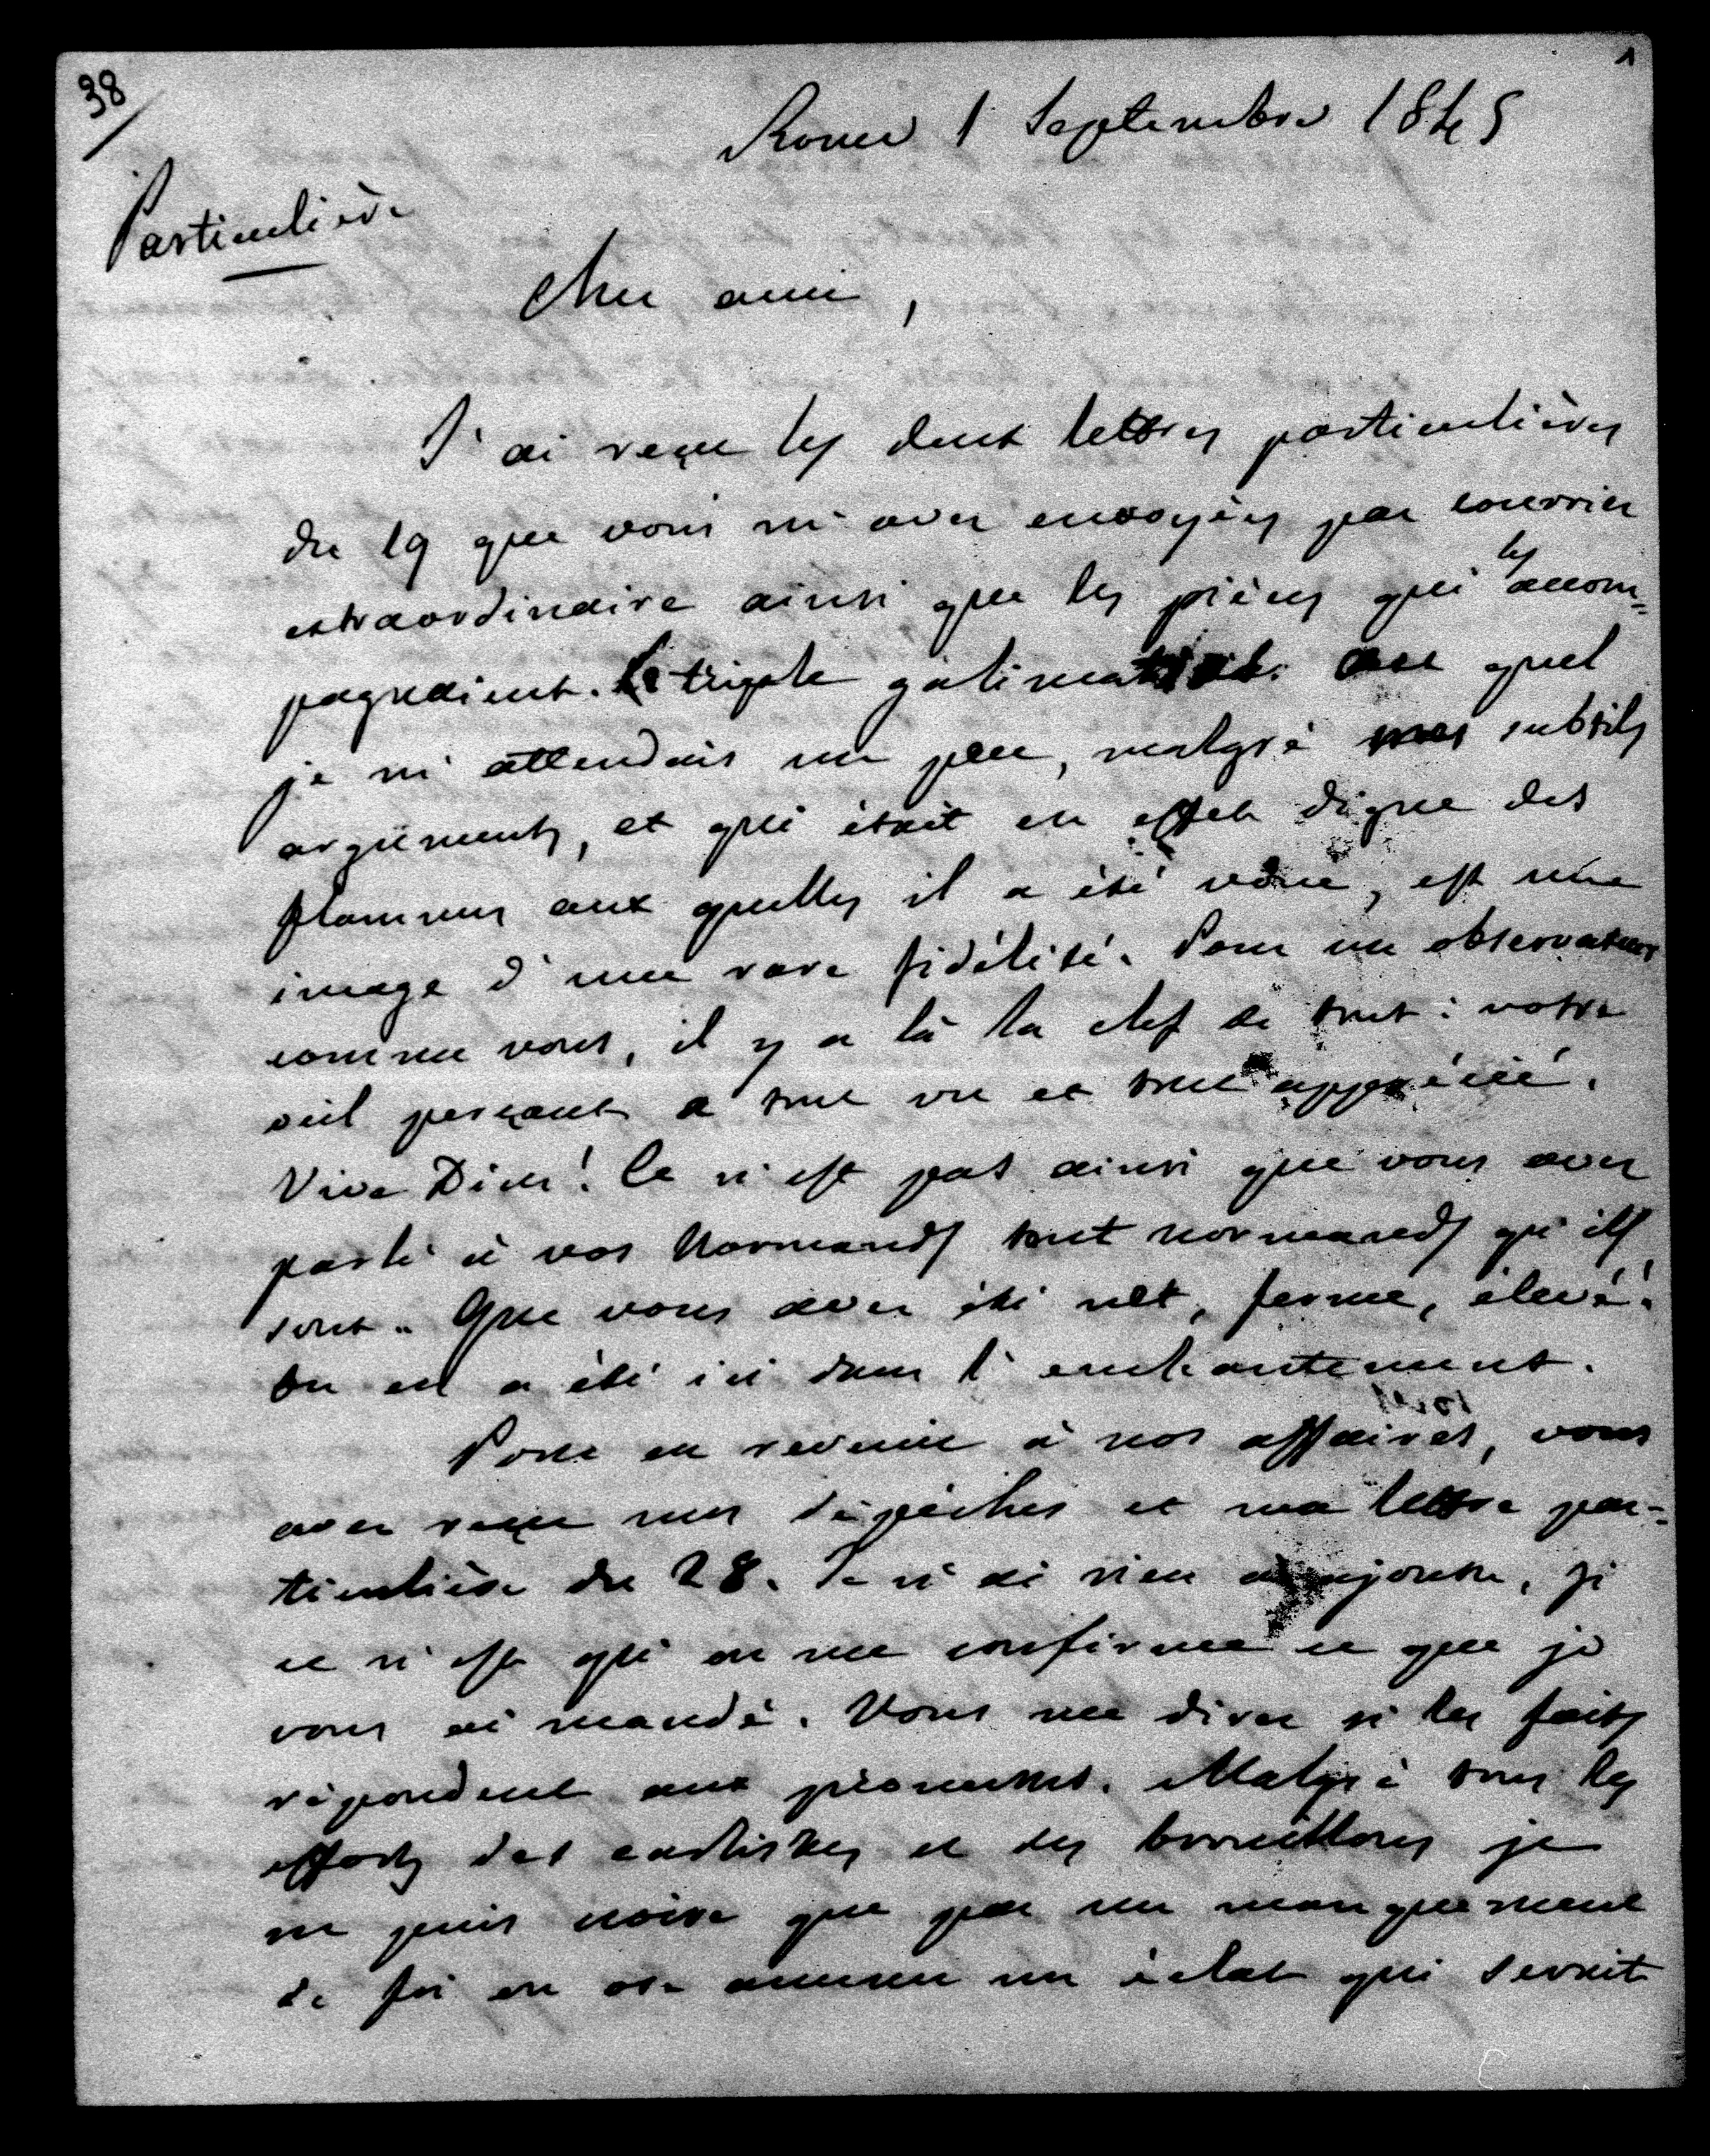 38
1
Rome 1 Septembre 1845
Particulière
Cher ami,
J'ai reçu les deux lettres particulières
du 19 que vous m'avez envoyées par courrier
extraordinaire ainsi que les pièces qui les accom=
pagnaient. Le triple galimatias au quel
je m'attendais un peu, malgré mes subtils
arguments, et qui était en effet digne des
flammes aux quelles il a été voué, est une
image d'une rare fidélité. Pour un observateur
comme vous, il y a là la clef de tout : votre
œil perçant a tout vu et tout apprécié.
Vive Dieu ! Ce n'est pas ainsi que vous avez
parlé à vos Normands tout normands qu'ils
sont. Que vous avez été net, ferme, élevé !
On en a été ici dans l'enchantement.
Pour en revenir à nos affaires, vous
avez reçu mes dépêches et ma lettre par=
ticulière du 28. Je n'ai rien à ajouter, si
ce n'est qu'on me confirme ce que je
vous ai mandé. Vous me direz si les faits
répondent aux promesses. Malgré tous les
efforts des carlistes et des brouillons je
ne puis croire que par un manquement
de foi on ose amener un éclat qui serait